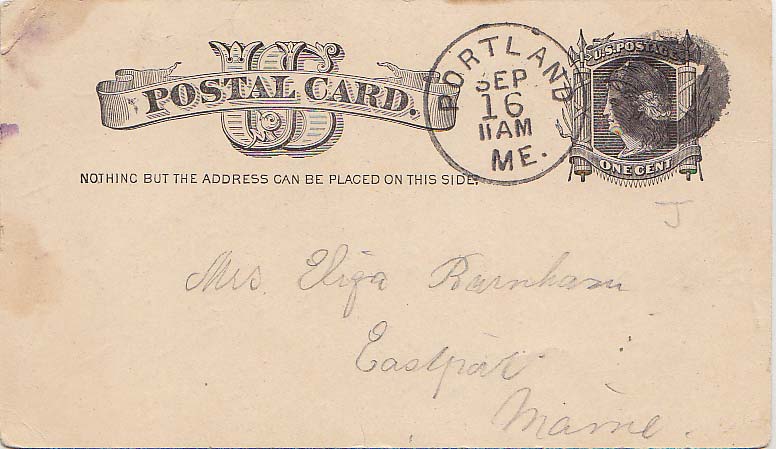 US
POSTAL CARD.
PORTLAND
SEP
16
11AM
ME.
U.S. POSTAGE
ONE CENT
NOTHING BUT THE ADDRESS CAN BE PLACED ON THIS SIDE.
J
Mrs. Eliza Burnham
Eastport
Maine.